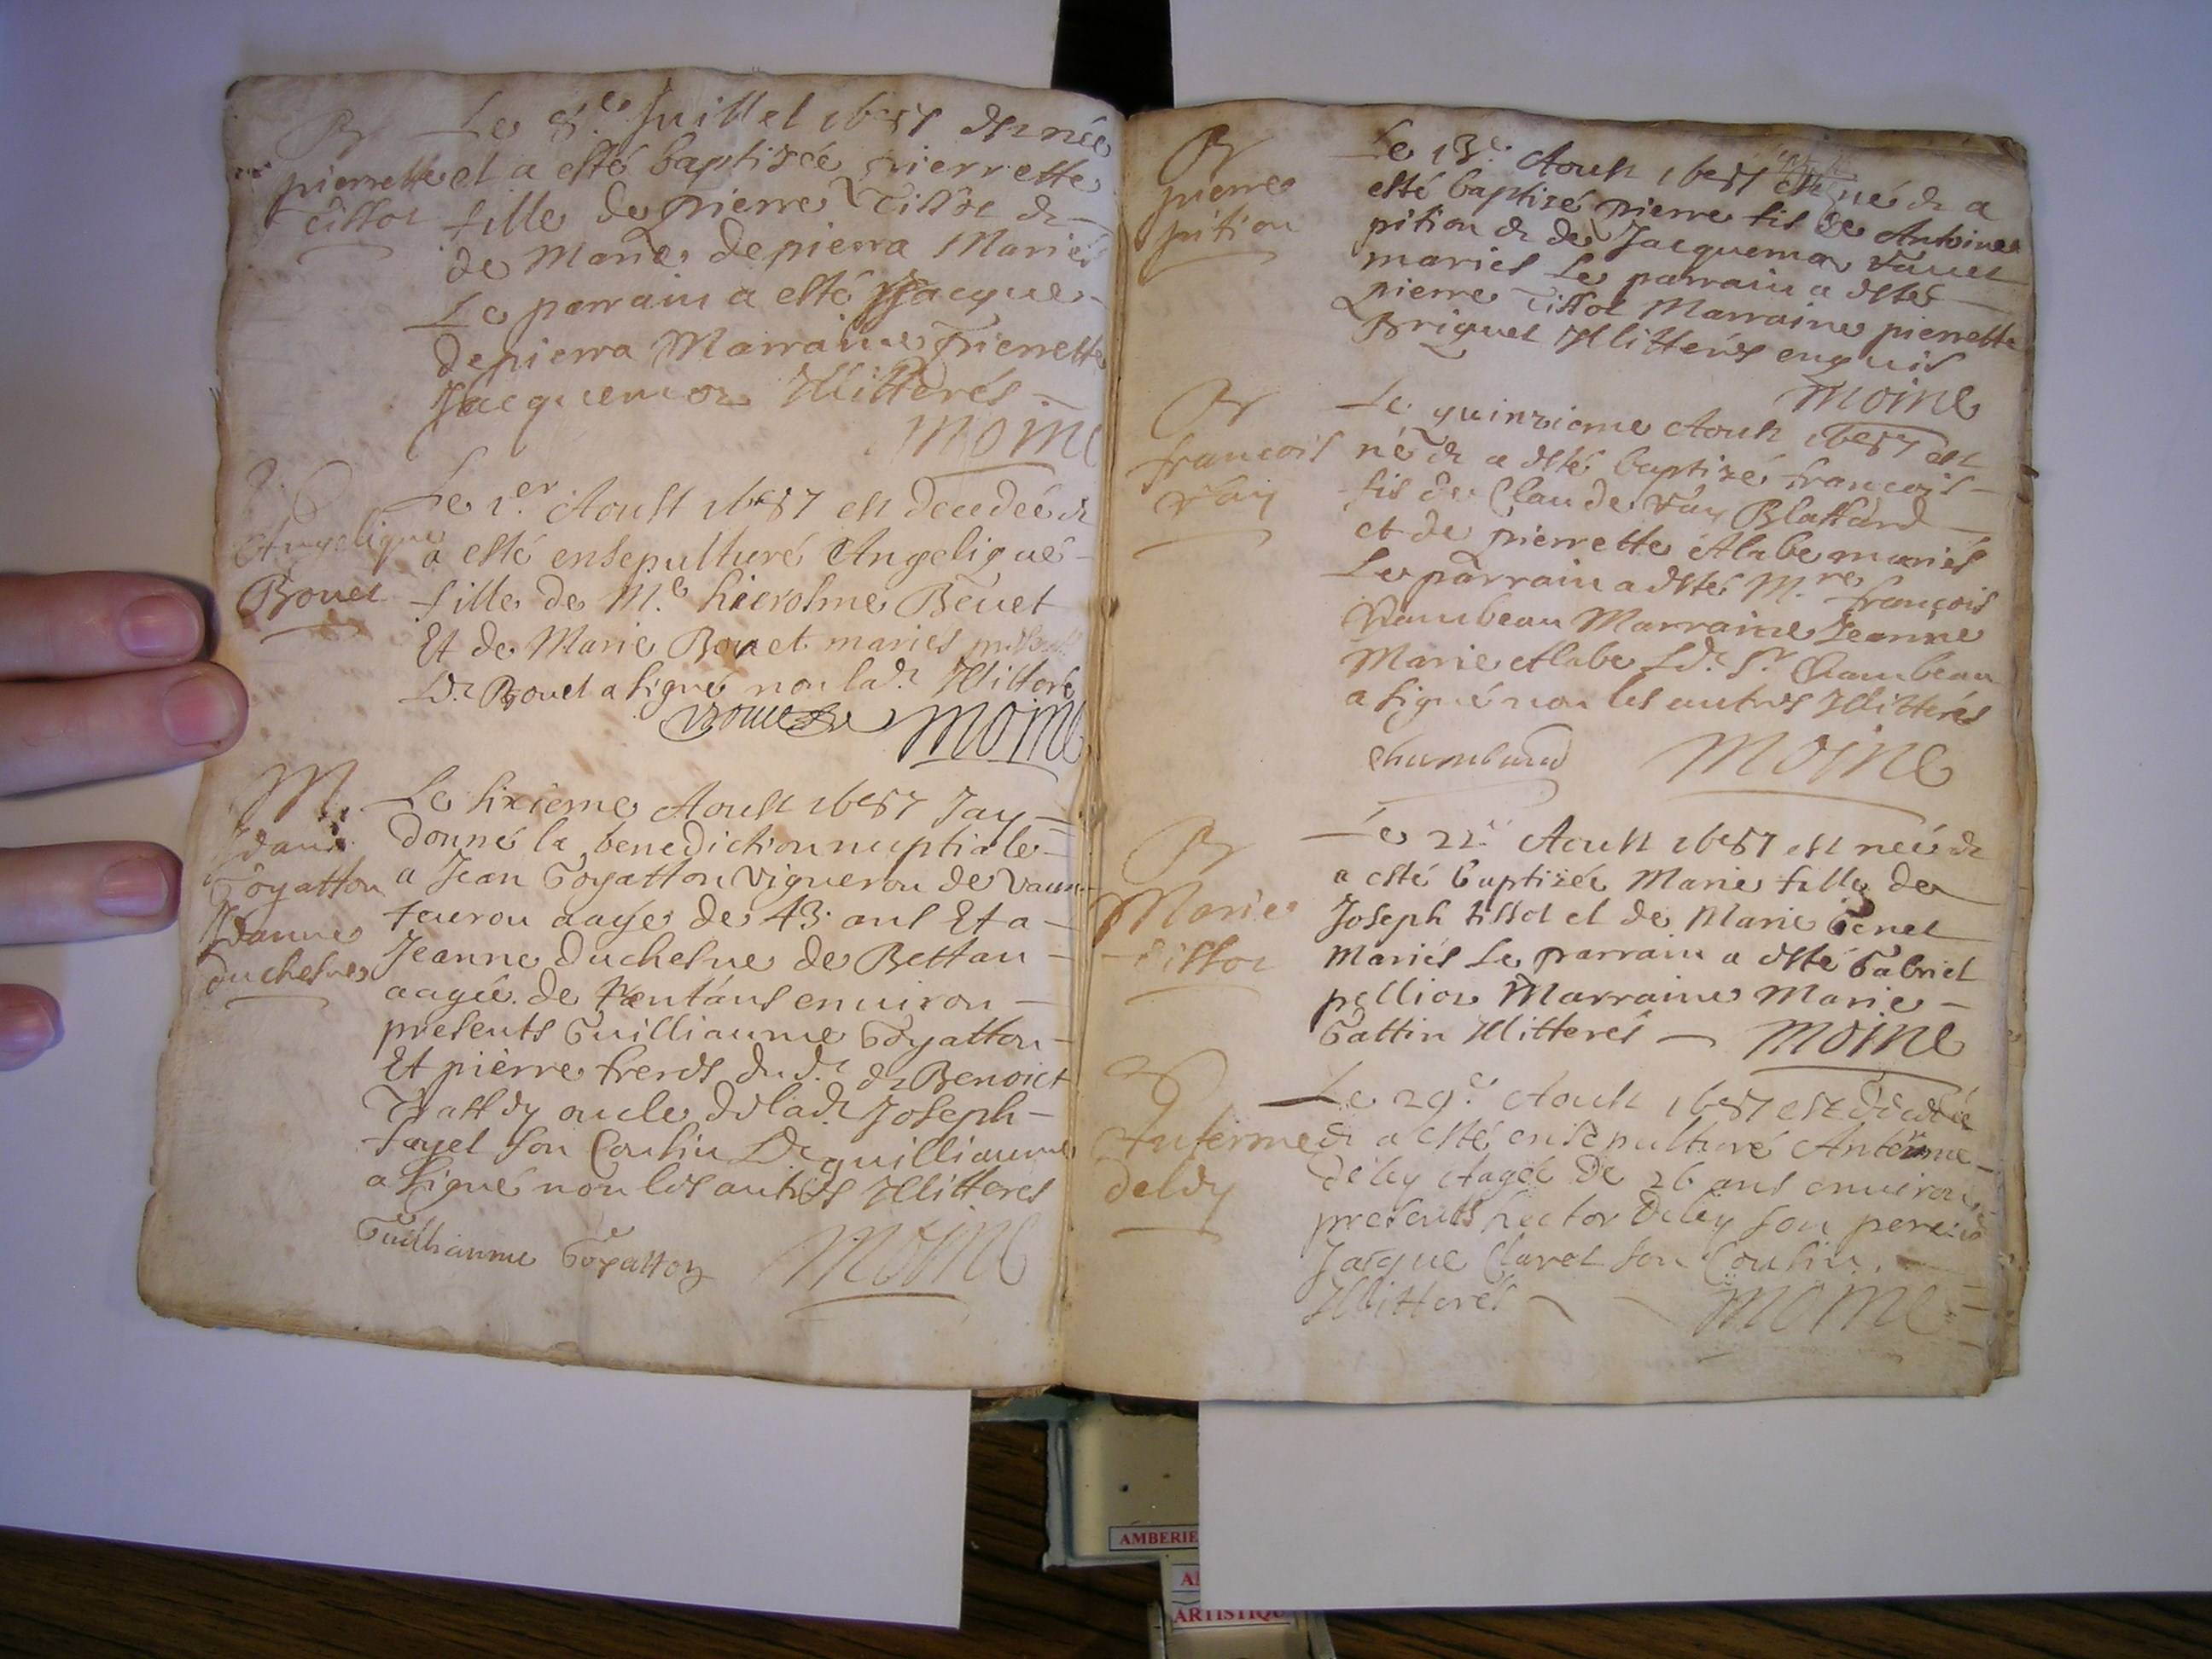 B
pierrette
Tissot
Le 8.e Juillet 1687 est née
et a esté baptizée pierrette
fille de pierre Tissot et
de Marie depierra Mariés
Le parrain a esté Jacque
depierra Marraine Pierrette
Jacquemoz Illitterés
Moine
Angelique
Bouet
Le 1.er Aoust 1687 est decedée et
a esté ensepulturé Angelique
fille de M.e hierosme Bouet
Et de Marie Bouet mariés
Ld. Bouet a signé non lad. Illitteré
Moine
M
Jean
Goyatton
Jeanne
duchesne
Le sixieme Aoust 1687 Jay
donné la benediction nuptiale
a Jean Goyatton vigneron de Vaux
feurou aagé de 43 ans Et a
Jeanne Duchesne de Bettan
aagée de trent'ans environ
presents Guilliaume Goyatton
Et pierre freres dud. et Benoict
oncle de lad. Joseph
fayel son Cousin Led. guilliaume
a signé non les autres Illitteres
Guilliaume Goyatton
Moine
B
pierre
pition
Le 13.e Aoust 1687 est né et a
esté baptizé pierre fils de Antoine
pition et de Jacquema
mariés Le parrain a esté
pierre Tissot Marraine pierrette
Briguet Illitterés enquis
Moine
B
francois
Vay
Le quinzieme Aoust 1687 est
né et a esté baptizé francois
fils de Claude Vay Blattard
et de pierrette Alabe mariés
Le parrain a esté M.re françois
Chambeau Marraine Jeanne
Marie Alabe Ld. Sr Chambeau
a signé non les autres Illitterés
Moine
B
Marie
Tissot
Le 22.e Aoust 1687 est neé et
a esté baptizée Marie fille de
Joseph tissot et de Marie Genet
Mariés Le parrain a esté Gabriel
pellioz Marraine Marie
Gattin Illitterés
Moine
Anterme
deley
Le 29.e Aoust 1687 est decedée
et a esté ensepulturé Anterme
deley Aagée de 26 ans environ
presents hector deley son pere et
Jacque Claret son Cousin
Illitterés
Moine
AMBERIE
ARTISTIQU